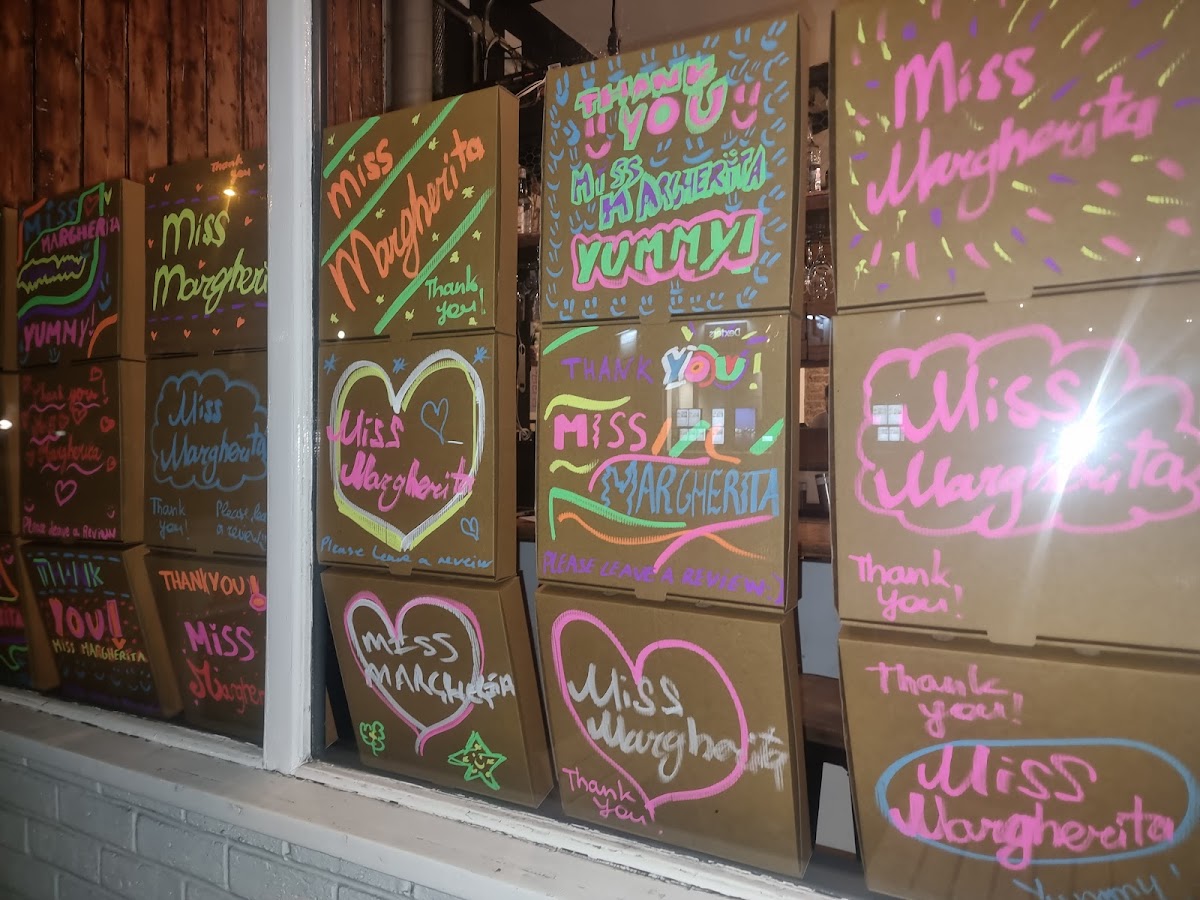 MISS
MARGHERITA
YUMMY!
Thank
you
Miss
Margheri
Miss
Margherita
Thank
you!
THANK
YOU
MISS
MARGHERITA
YUMMY!
Miss
Margherita
Thank you
Miss
Margherita
Please leave a Review
Miss
Margherita
Thank
you!
Please lea
a review!
Miss
Margherita
Please Leave a reveiw
THANK YOU!
MISS
MARGHERITA
PLEASE LEAVE A REVIEW :)
Miss
Margherita
Thank
you!
THANK
YOU!
MISS MARGHERITA
THANK YOU!
MISS
Margher
MISS
Miss
Margherita
Thank
you!
Thank
you!
Miss
Margherita
Yummy!